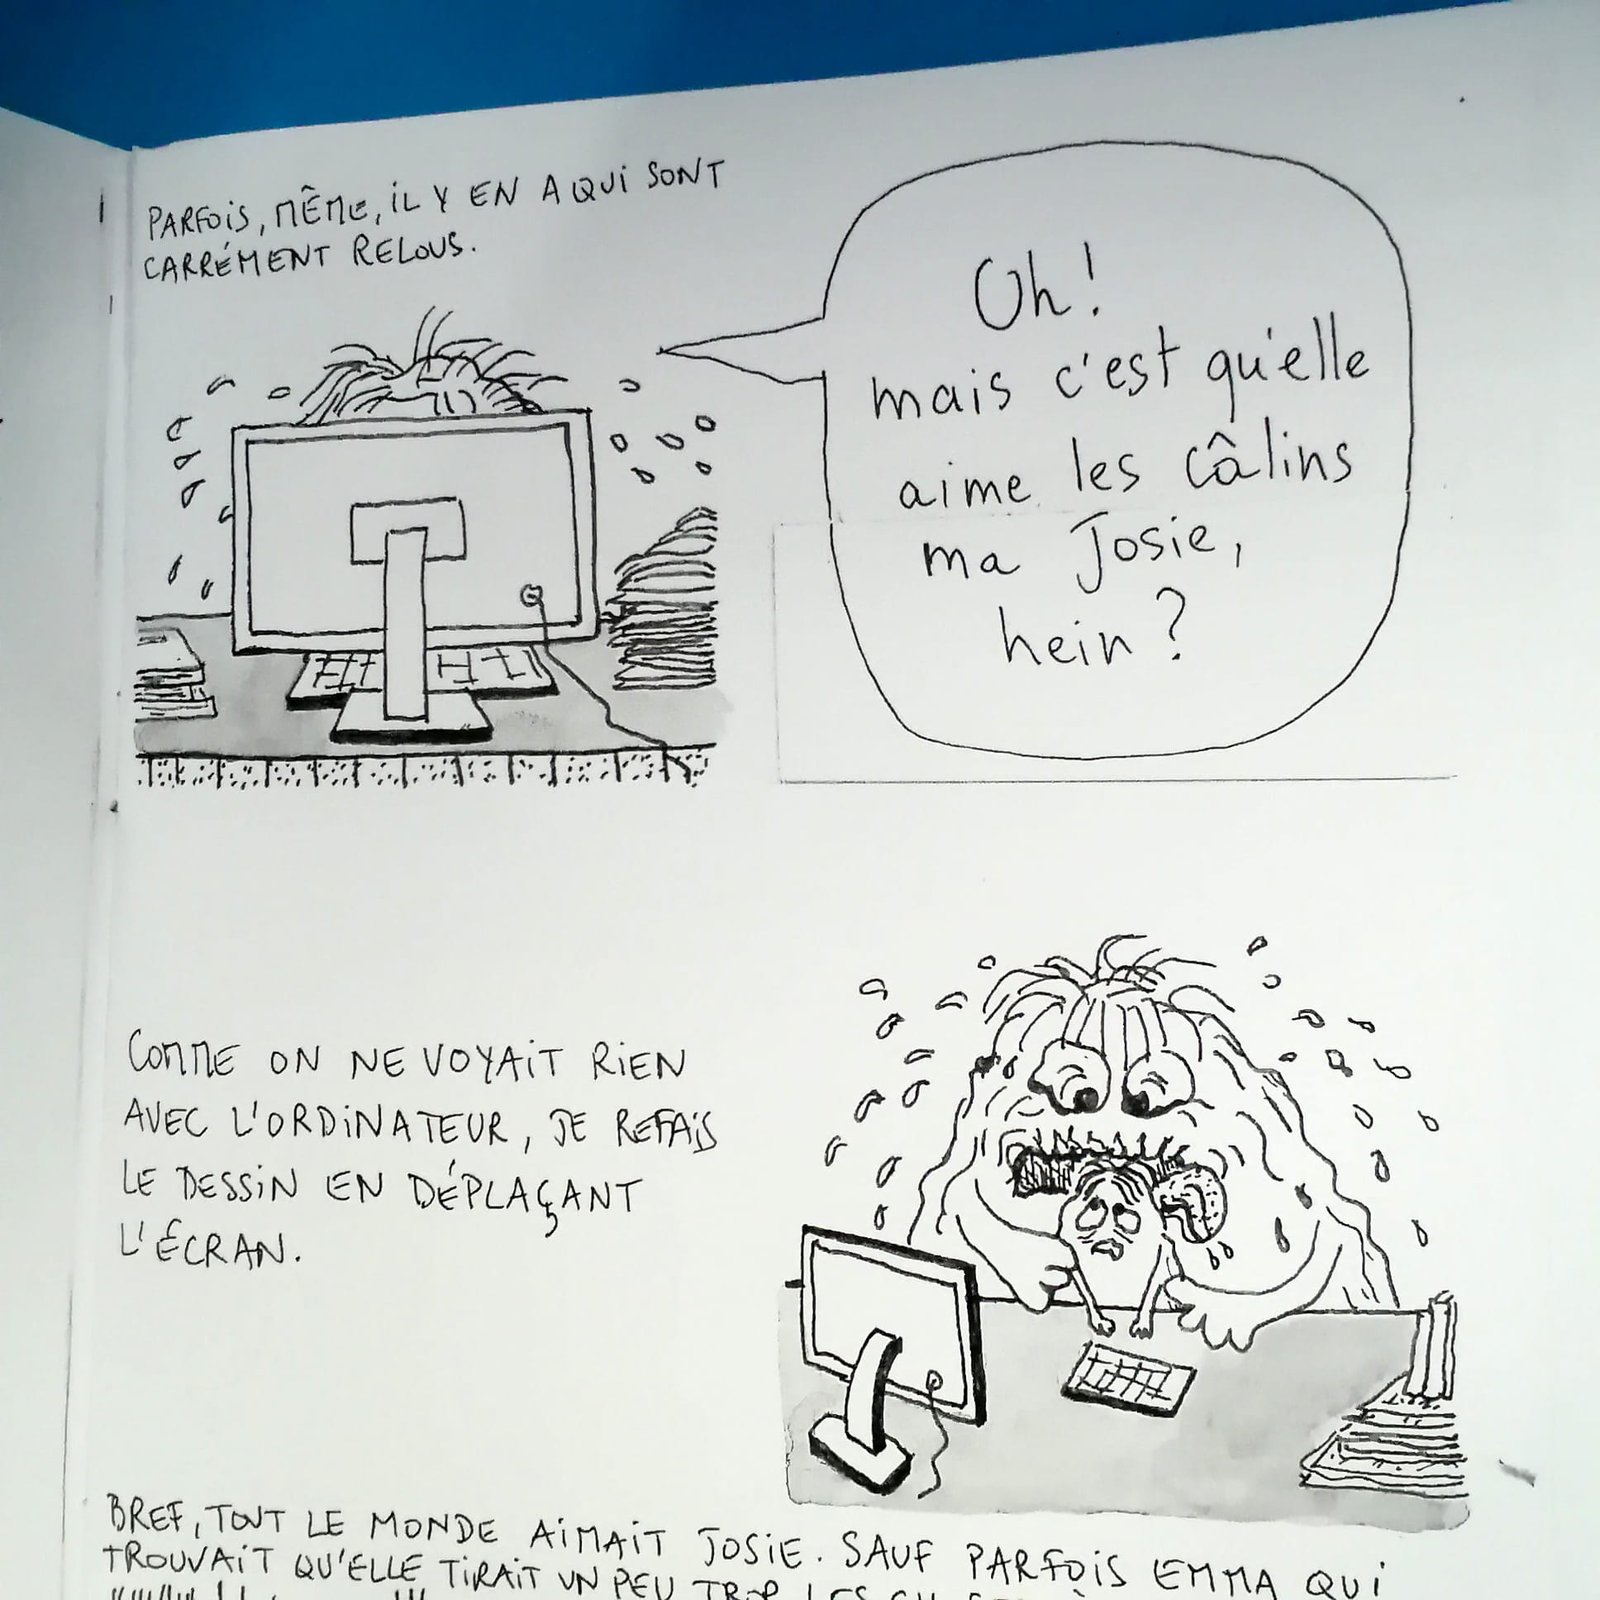 PARFOIS, MÊME, IL Y EN A QUI SONT
CARRÉMENT RELOUS.
Oh!
mais c'est qu'elle
aime les câlins
ma Josie,
hein ?
COMME ON NE VOYAIT RIEN
AVEC L'ORDINATEUR, JE REFAIS
LE DESSIN EN DÉPLAÇANT
L'ÉCRAN.
BREF, TOUT LE MONDE AIMAIT JOSIE. SAUF PARFOIS EMMA QUI
TROUVAIT QU'ELLE TIRAIT UN PEU TROP LES